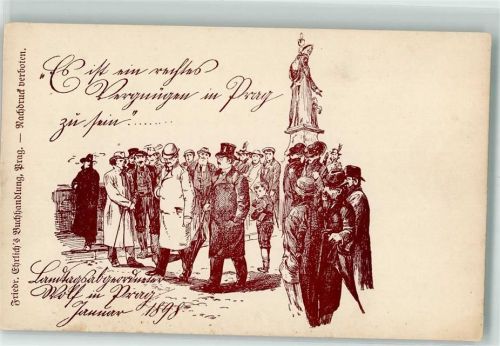 „Es ist ein rechtes
Vergnügen in Prag
zu sein“........
Landtagsabgeordneter
Wolf in Prag
Januar 1898
Friedr. Ehrlich's Buchhandlung, Prag. — Nachdruck verboten.